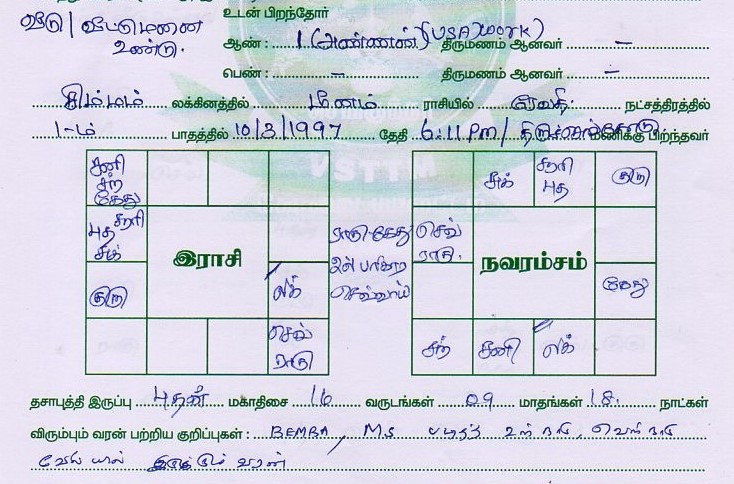 உடன் பிறந்தோர்
வீடு / வீட்டுமனை
உண்டு.
ஆண் : 1 (அண்ணன்) (USA) WORK) திருமணம் ஆனவர் –
பெண் : – திருமணம் ஆனவர் –
சிம்மம் லக்கினத்தில் மீனம் ராசியில் ரேவதி நட்சத்திரத்தில்
1-ம் பாதத்தில் 10/3/1997 தேதி 6:11 PM / திருச்செங்கோடு மணிக்கு பிறந்தவர்
MTTSV
சனி சந் கேது
புத சூரி சுக்
குரு
இராசி
லக்
செவ் ராகு
ராகு-கேது
செவ்வாய்
சுக்
சூரி புத
குரு
செவ் ராகு.
நவரம்சம்
கேது
சந்
சனி
லக்
தசாபுத்தி இருப்பு புதன் மகாதிசை 16 வருடங்கள் 09 மாதங்கள் 18 நாட்கள்
விரும்பும் வரன் பற்றிய குறிப்புகள் : BEMBA, MS படித்த உள்நாடு, வெளிநாடு
வேலையில் இருக்கும் வரன்